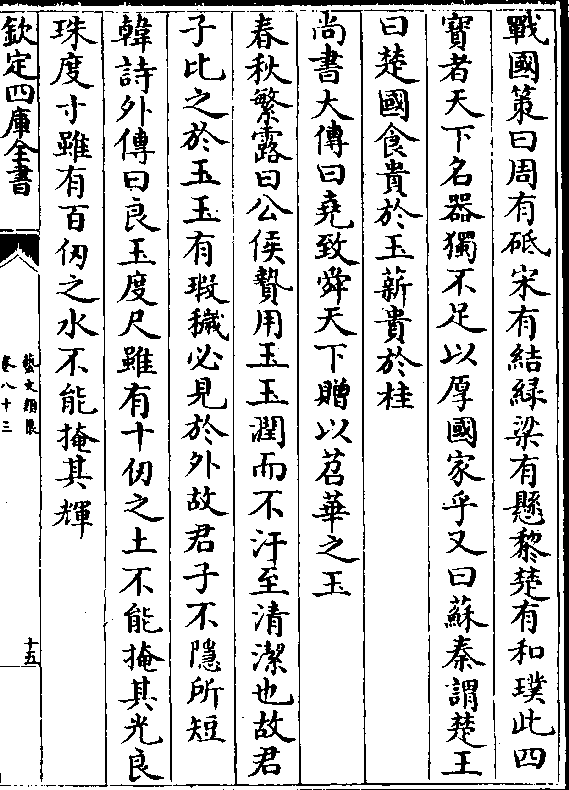 戰國策曰周有砥宋有結緑梁有懸黎楚有和璞此四
寶者天下名器獨不足以厚國家乎又曰蘇秦謂楚王
曰楚國食貴於玉薪貴於桂
尚書大傳曰堯致舜天下贈以苕華之玉
春秋繁露曰公侯贄用玉玉潤而不汙至清潔也故君
子比之於玉玉有瑕穢必見於外故君子不隱所短
韓詩外傳曰良玉度尺雖有十仞之土不能掩其光良
珠度寸雖有百仞之水不能掩其輝
欽定四庫全書
藝文類聚
卷八十三
十五